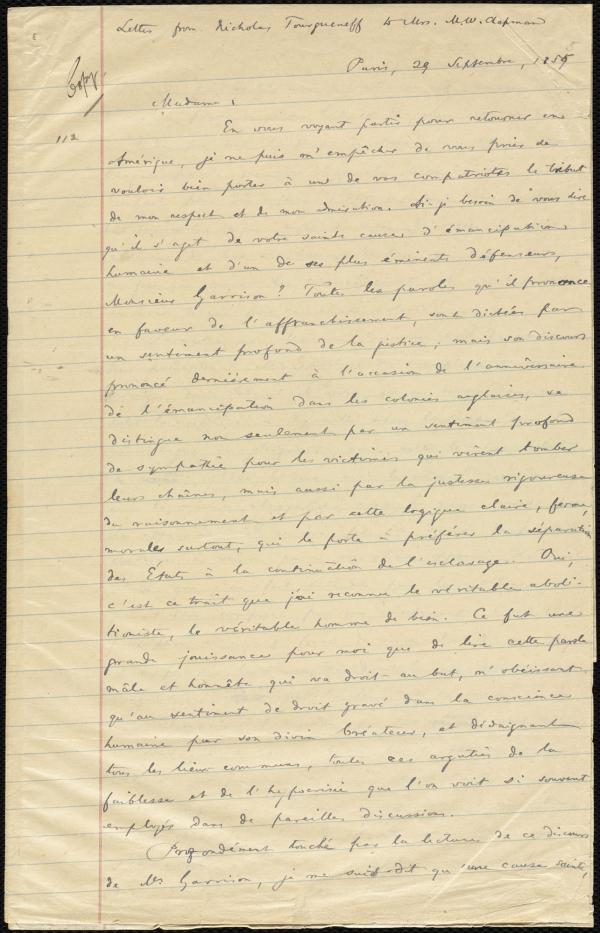 Letter from Nicholas Tourgueneff to Mrs. M. W. Chapman
Copy
Paris, 29 Septembre, 1855
Madame,
112
En vous voyant partir pour retourner en
Amérique, je ne puis m'empêcher de vous prier de
vouloir bien porter à un de vos compatriotes le tribut
de mon respect et de mon admiration. Ai-je besoin de vous dire
qu'il s'agit de votre sainte cause d'émancipation
humaine et d'un de ses plus éminents défenseurs,
Monsieur Garrison? Toutes les paroles qu'il prononce
en faveur de l'affranchissement, sont dictées par
un sentiment profond de la justice; mais son discours
prononcé dernièrement à l'occasion de l'anniversaire
de l'émancipation dans les colonies anglaises, se
distingue non seulement par un sentiment profond
de sympathie pour les victimes qui virent tomber
leurs chaînes, mais aussi par la justesse rigoureuse
du raisonnement et par cette logique claire, ferme,
morale surtout, qui le porte à préférer la séparation
des États à la continuation de l'esclavage. Oui,
c'est ce trait que j'ai reconnu le véritable aboli-
tioniste, le véritable homme de bien. Ce fut une
grande jouissance pour moi que de lire cette parole
mâle et honnête qui va droit au but, n'obéissant
qu'au sentiment de droit gravé dans la conscience
humaine par son divin Créateur, et dédaignant
tous les lieux communs, toutes ces arguties de la
faiblesse et de l'hypocrisie que l'on voit si souvent
employés dans de pareilles discussions.
Profondément touché par la lecture de ce discours
de Mr. Garrison, je me suis dit qu'une cause sainte,